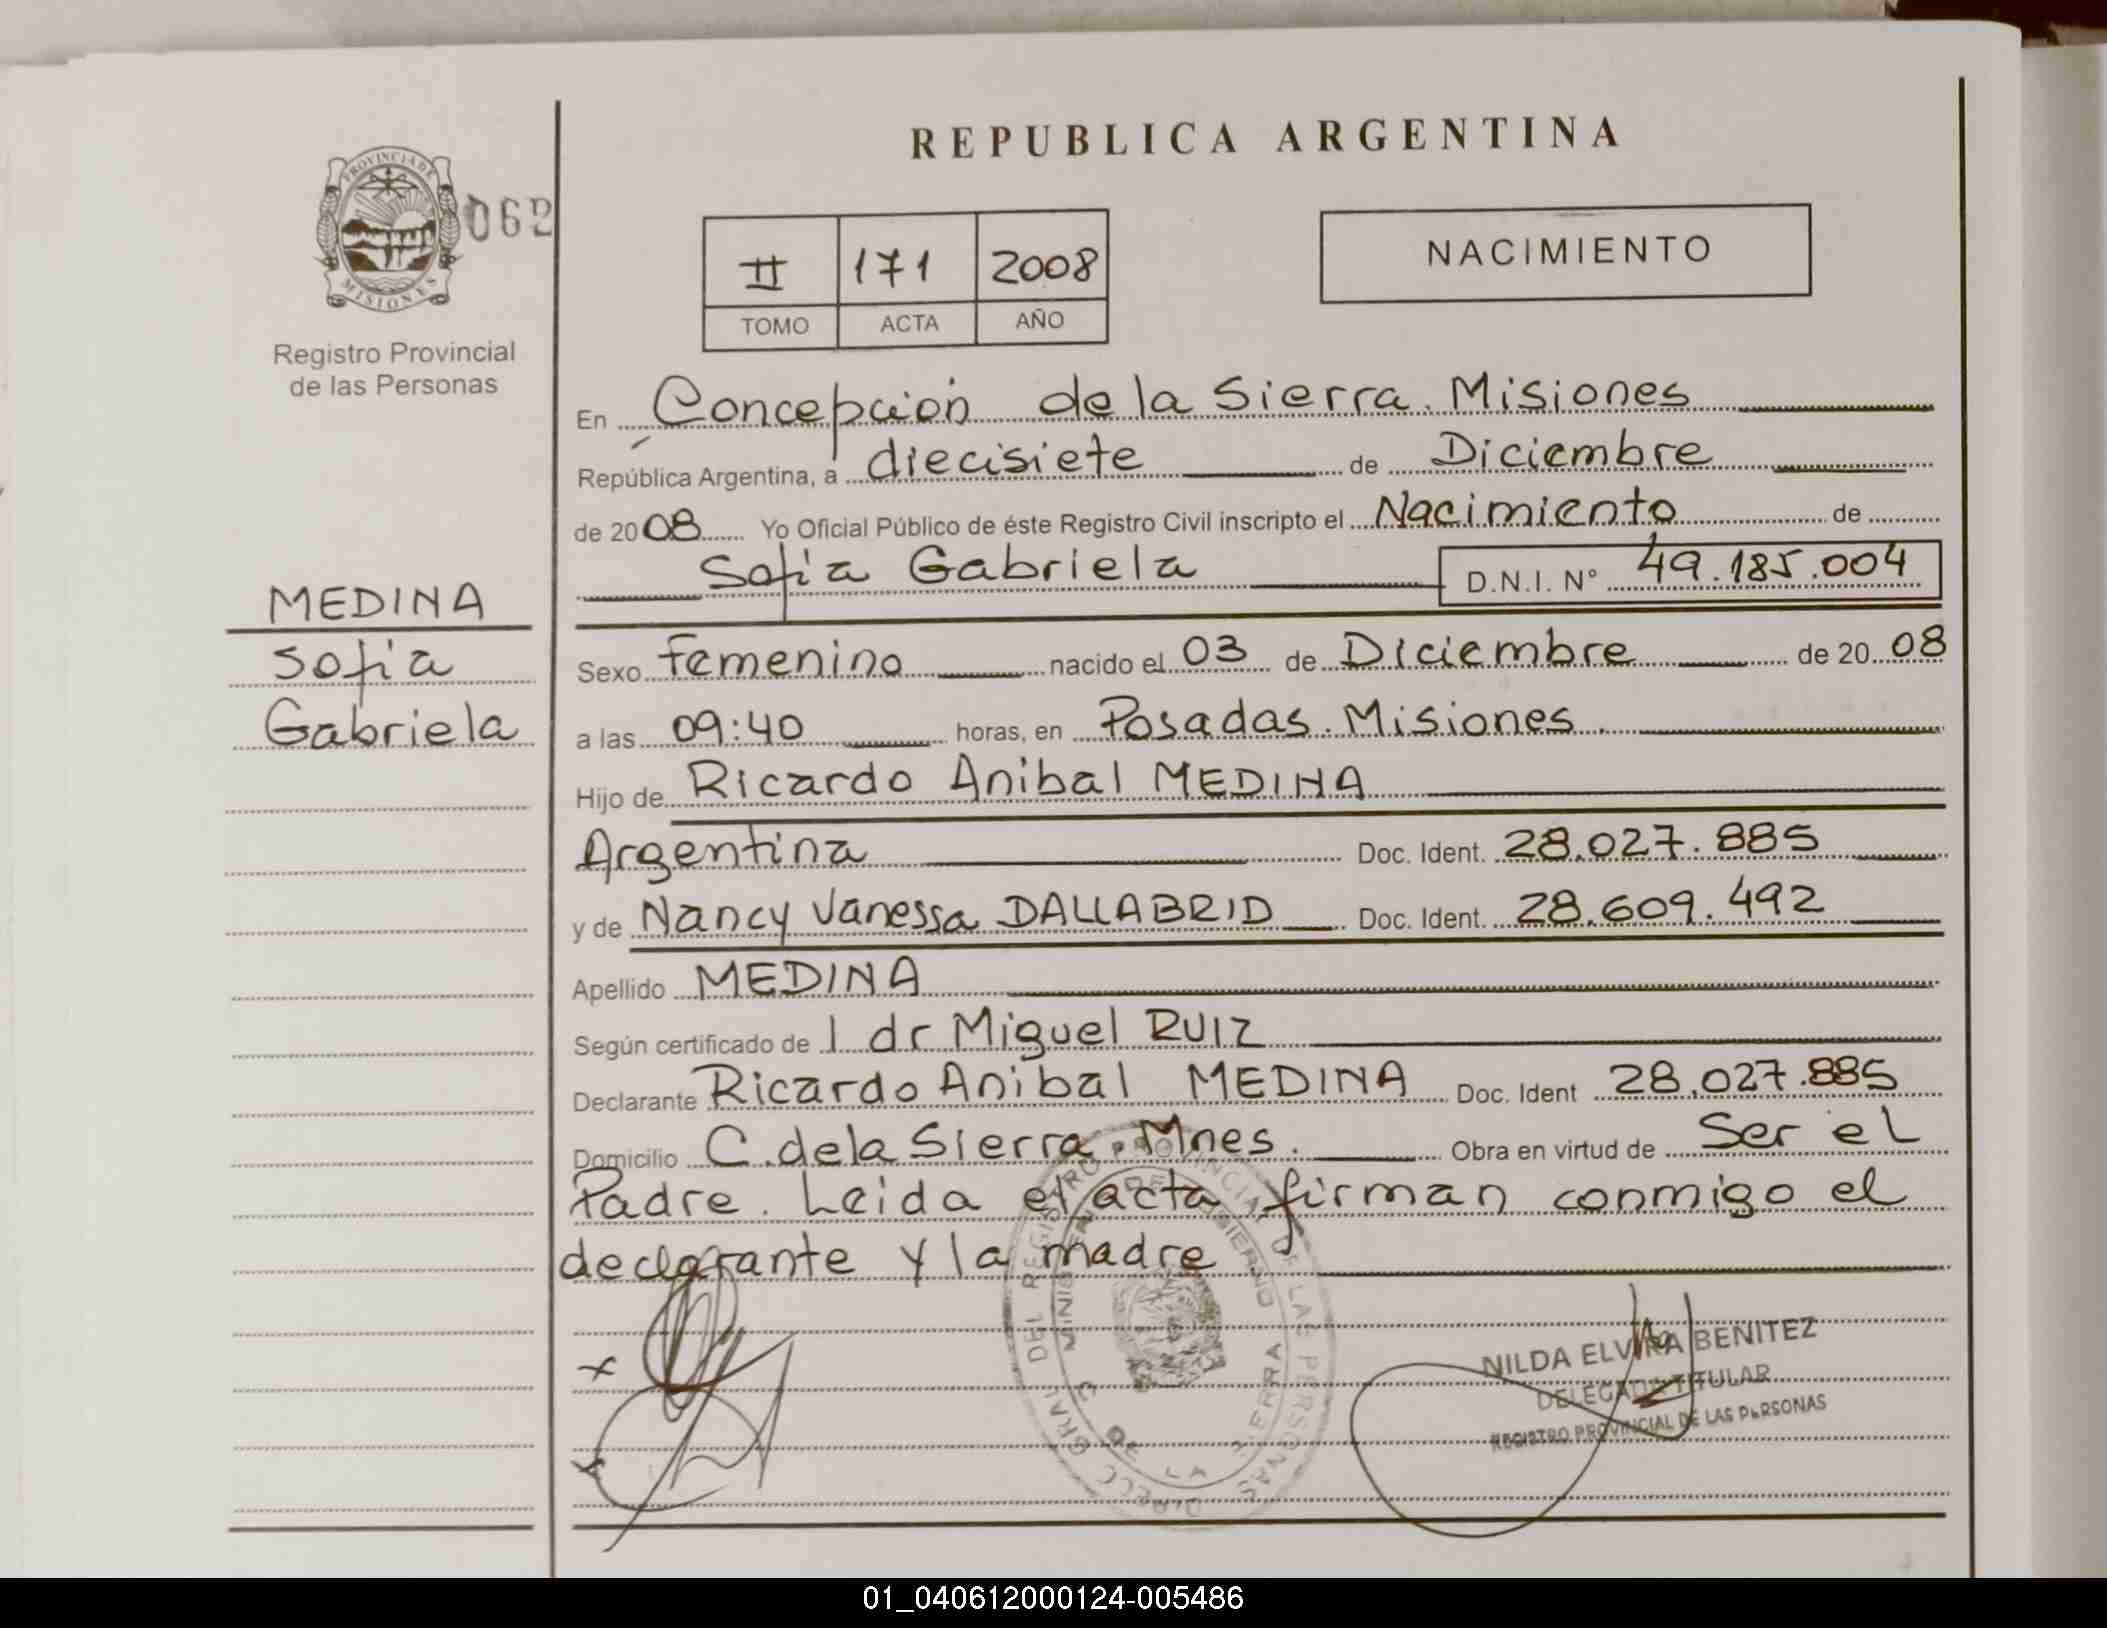 REPUBLICA ARGENTINA
PROVINCIA DE
MISIONES
062
Registro Provincial
de las Personas
II 171 2008
TOMO ACTA AÑO
NACIMIENTO
En Concepción de la Sierra. Misiones
República Argentina, a diecisiete de Diciembre
de 2008 Yo Oficial Público de éste Registro Civil inscripto el Nacimiento de
Sofia Gabriela D.N.I. N° 49.185.004
MEDINA
Sofia
Gabriela
Sexo Femenino nacido el 03 de Diciembre de 2008
a las 09:40 horas, en Posadas. Misiones.
Hijo de Ricardo Anibal MEDINA
Argentina Doc. Ident. 28.027.885
y de Nancy Vanessa DALLABRID Doc. Ident. 28.609.492
Apellido MEDINA
Según certificado de l dr Miguel RUIZ
Declarante Ricardo Anibal MEDINA Doc. Ident 28.027.885
Domicilio C. de la Sierra. Mnes. Obra en virtud de Ser el
Padre. Leida el acta firman conmigo el
declarante y la madre
DIRECC GRAL DEL REGISTRO PROVINCIAL DE LAS PERSONAS
MINISTERIO DE GOBIERNO
C DE LA SIERRA
NILDA ELVIRA BENITEZ
DELEGADA TITULAR
REGISTRO PROVINCIAL DE LAS PERSONAS
01_040612000124-005486